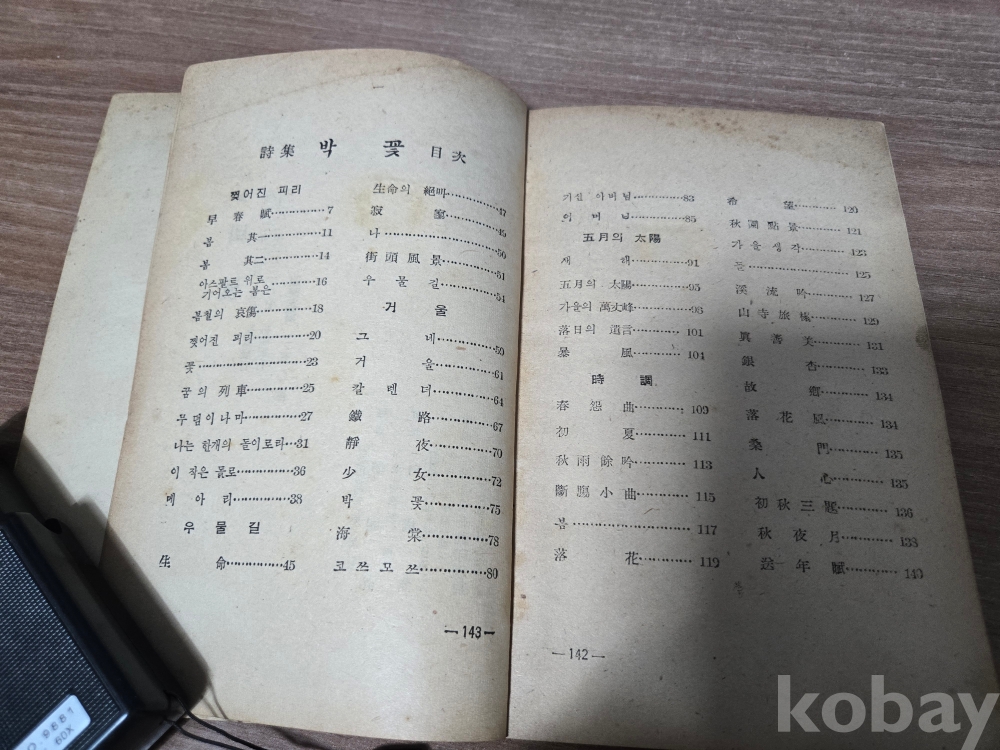 詩集 박 꽃 目次
찢어진 피리
早春賦……………7
봄 其一…………11
봄 其二…………14
아스팔트 위로
기어오는 봄은…………16
봄철의 哀傷…………18
찢어진 피리…………20
꽃……………………23
꿈의 列車…………25
무덤이나마…………27
나는 한개의 돌이로라…31
이 적은 몸로…………36
메아리…………38
우물길
生命……………45
生命의 絕叫…………47
寂室…………49
나……………50
街頭風景…………51
우물길…………54
거울
그네…………59
거울…………61
칼렌더…………64
鐵路…………67
靜夜…………70
少女…………72
박꽃…………75
海棠…………78
코쓰모쓰……………80
—143—
가신 아버님…………83
어머님…………85
五月의 太陽
새해…………91
五月의 太陽…………93
가을의 萬丈峰…………95
落日의 遺言…………101
暴風…………104
時調
春怨曲…………109
初夏…………111
秋雨餘吟…………113
小曲…………115
봄……………………117
落花…………119
希望…………120
秋園點景…………121
가을생각…………123
돌…………125
溪流吟…………127
山寺旅…………129
眞善美…………131
銀杏…………133
故鄕…………134
落花風…………134
門…………135
人心…………135
初秋三題…………136
秋夜月…………138
送年賦…………140
—142—
9881
60X
kobay